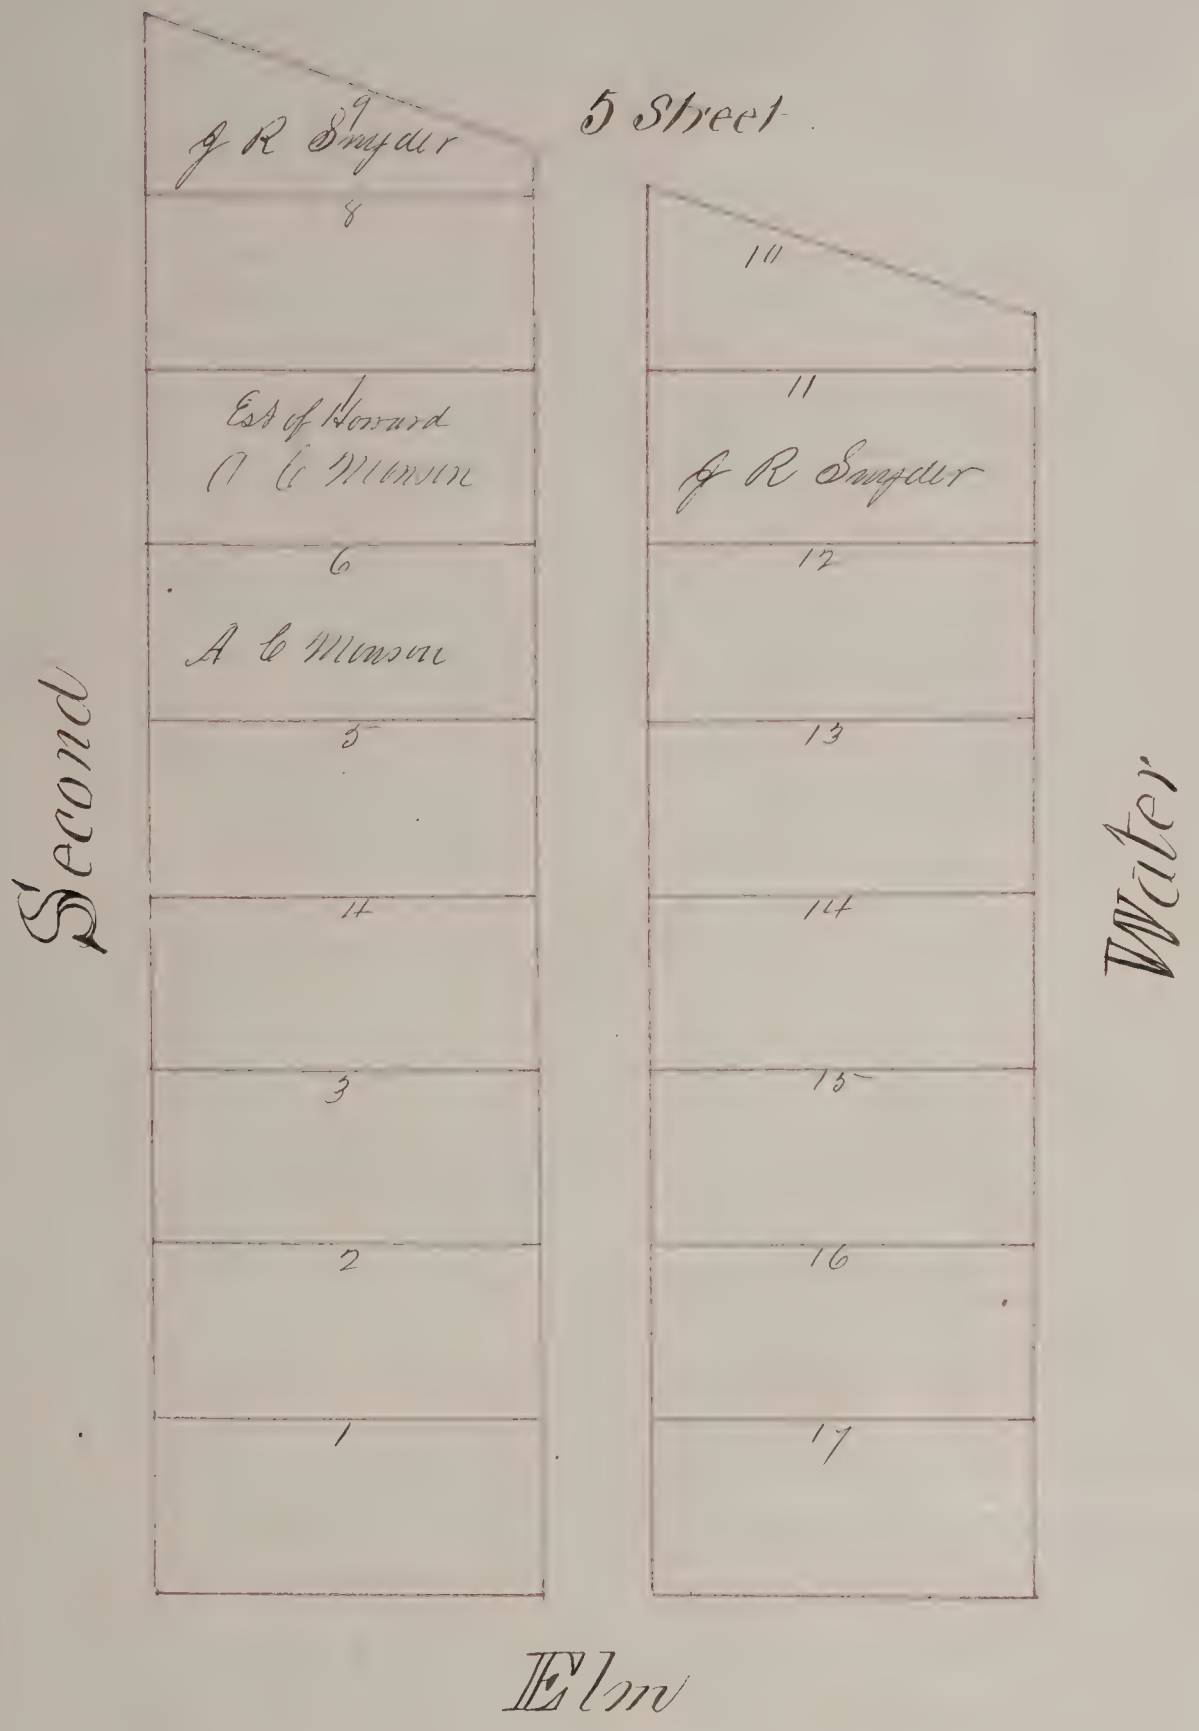 5 Street
9
J R Snyder
8
7
Est of Howard
A C Monson
6
A C Monson
5
4
3
2
1
10
11
J R Snyder
12
13
14
15
16
17
Second
Water
Elm